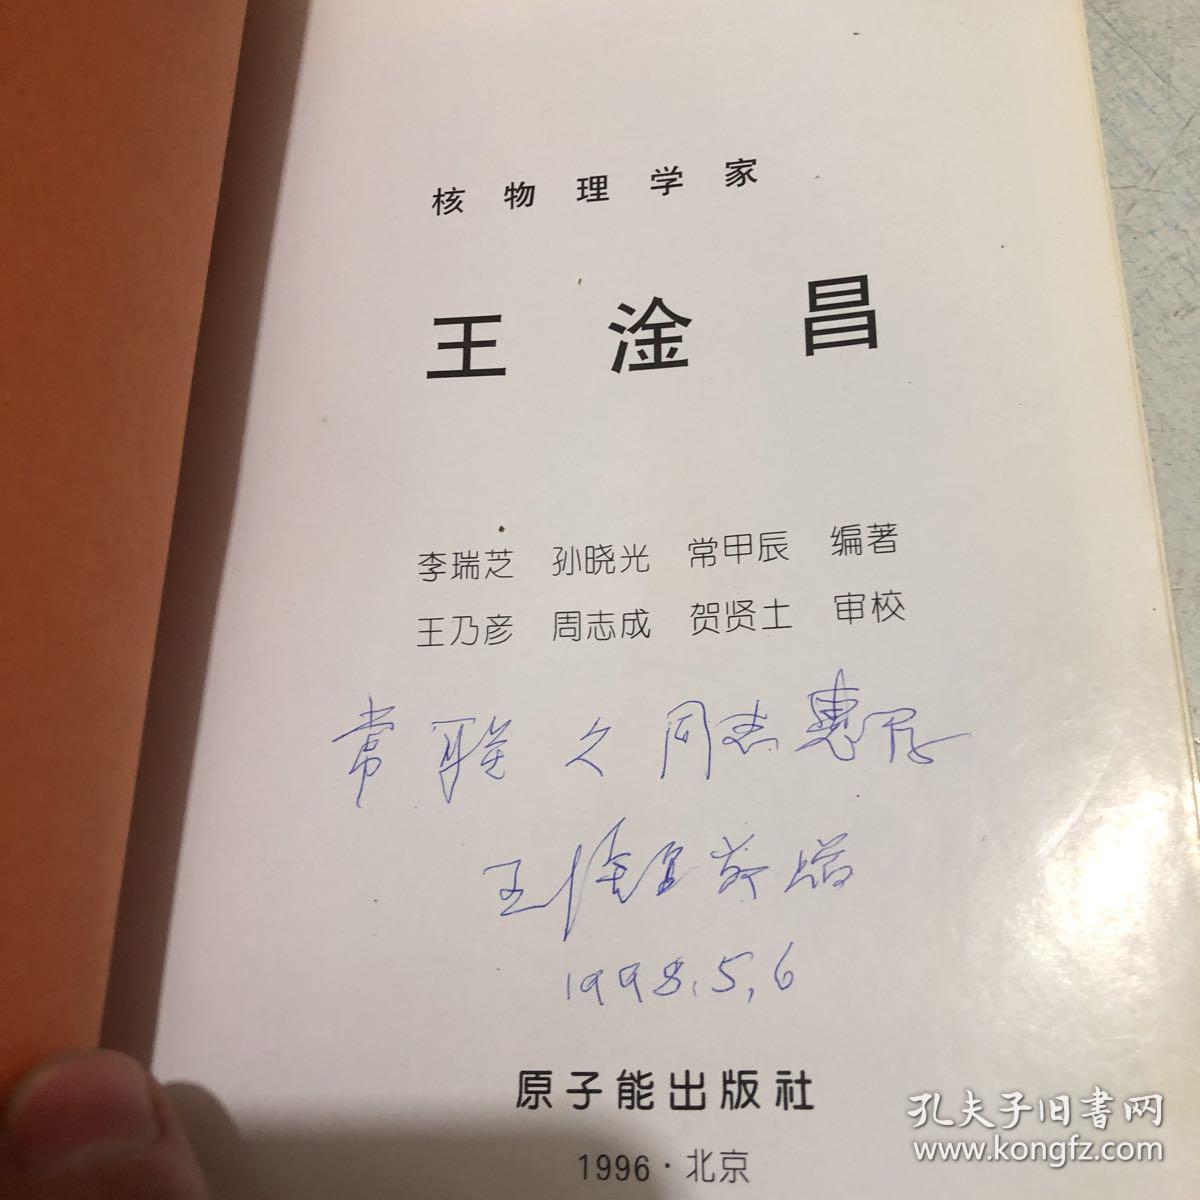 核物理学家
王淦昌
李瑞芝 孙晓光 常甲辰 编著
王乃彦 周志成 贺贤土 审校
常联久同志惠存
王淦昌敬赠
1998.5.6
原子能出版社
1996·北京
孔夫子旧书网
www.kongfz.com